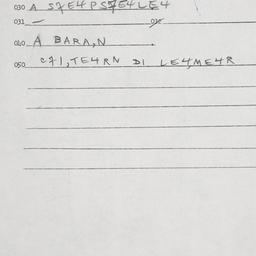 030 A S7E4PS7E4LE4
031 —
040 A BARA,N
050 C71,TE4RN DI LE4,ME4R